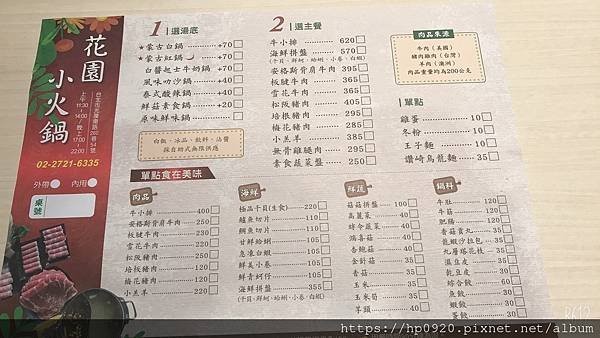 花園
小火鍋
台北市光復南路280巷54號
上午11:30-14:00/晚上17:00-22:00
02-2721-6335
外帶
內用
桌號
1 選湯底
★蒙古白鍋 +70
★蒙古紅鍋 +70
白醬起士牛奶鍋 +70
風味咖沙鍋 +40
泰式酸辣鍋 +40
鮮菇素食鍋 +20
原味鮮味鍋
白飯、冰品、飲料、沾醬
採自助式無限供應
2 選主餐
牛小排 620
海鮮拼盤 570
(干貝、鮮蚵、蛤蜊、小卷、白蝦)
安格斯背肩牛肉 395
板腱牛肉 365
雪花牛肉 365
松阪豬肉 405
培根豬肉 295
梅花豬肉 285
小羔羊 385
無骨雞腿肉 295
素食蔬菜盤 250
肉品來源
牛肉(美國)
豬肉雞肉(台灣)
羊肉(澳洲)
肉品重量均為200公克
單點
雞蛋 10
冬粉 10
王子麵 10
讚岐烏龍麵 35
單點食在美味
肉品
牛小排 400
安格斯背肩牛肉 250
板腱牛肉 230
雪花牛肉 220
松阪豬肉 250
培根豬肉 220
梅花豬肉 220
小羔羊 220
海鮮
極品干貝(生食) 220
鱸魚切片 110
鯛魚切片 110
甘鮮蛤蜊 105
急凍白蝦 105
鮮美小卷 105
鮮青蚵仔 105
海鮮拼盤 355
(干貝、鮮蚵、蛤蜊、小卷、白蝦)
鮮蔬
菇菇拼盤 100
高麗菜 40
綜合蔬菜 40
鴻喜菇 40
杏鮑菇 40
金針菇 35
香菇 35
玉米 35
玉米筍 35
芋頭 40
鍋料
牛肚
牛筋
肥腸
香菇貢丸 35
龍蝦沙拉包 35
九層塔花枝 35
濕豆皮 35
乾豆皮 30
綜合餃 30
魚餃 30
蝦餃 30
蛋餃 30
https://hp0920.pixnet.net/album